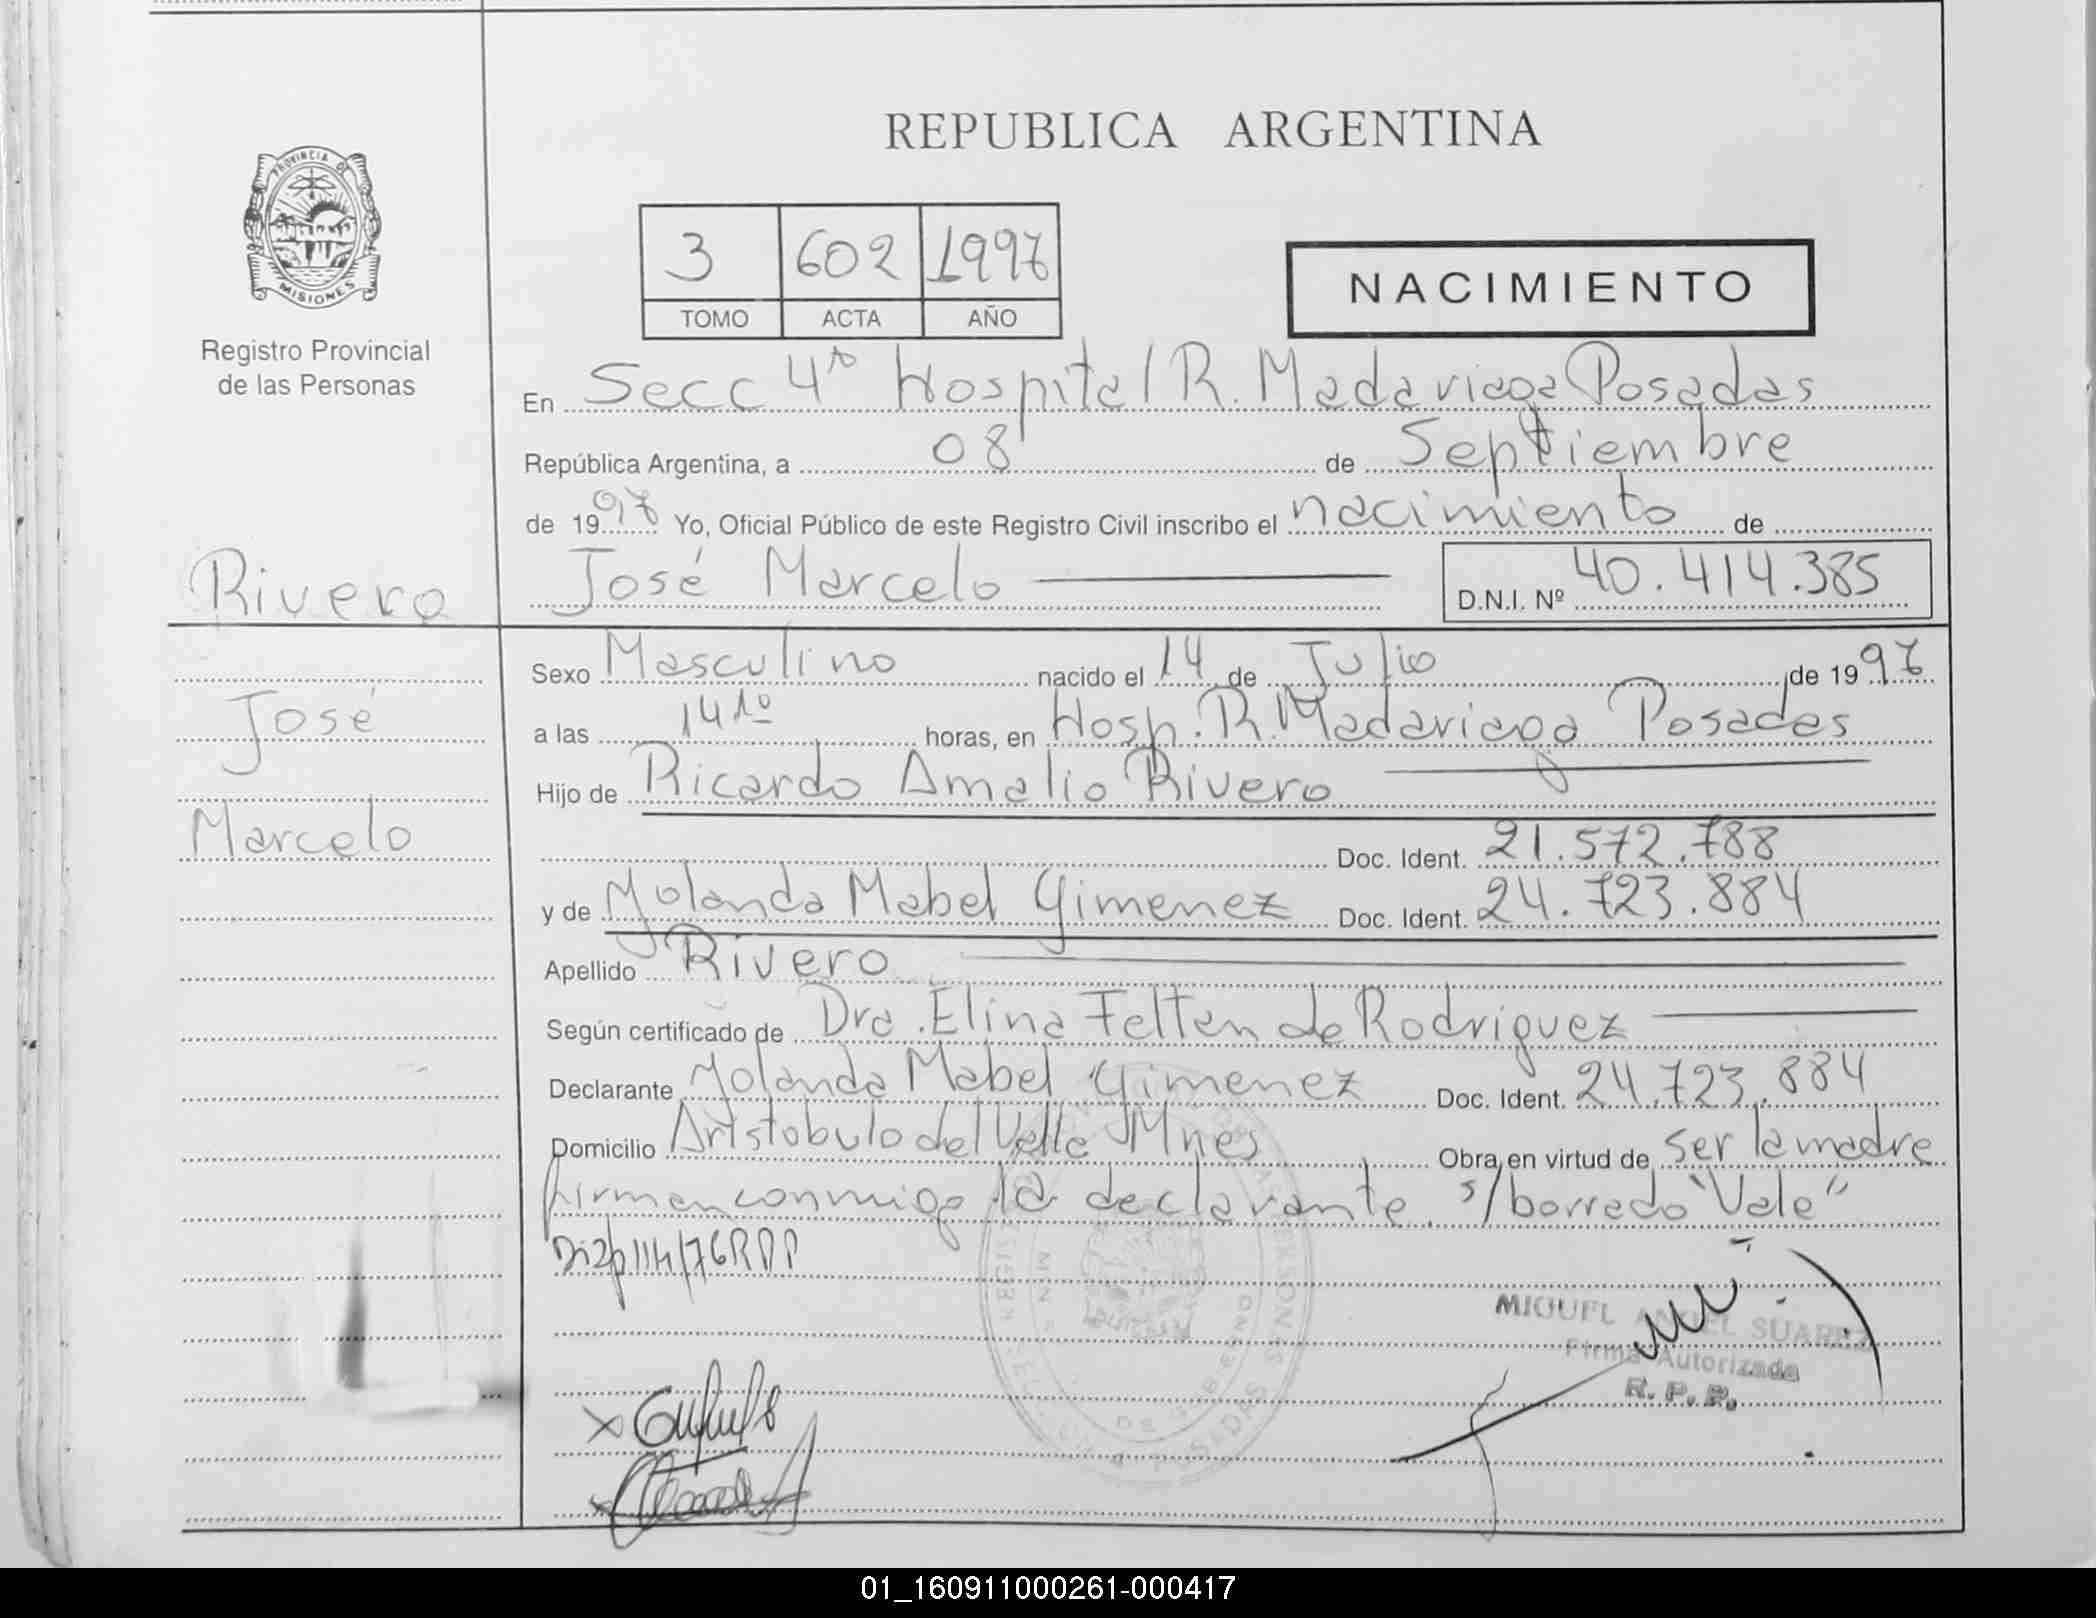 REPUBLICA ARGENTINA
PROVINCIA DE
MISIONES
Registro Provincial
de las Personas
3 602 1997
TOMO ACTA AÑO
NACIMIENTO
En Secc 4ta Hospital R. Madariaga Posadas
República Argentina, a 08 de Septiembre
de 1997 Yo, Oficial Público de este Registro Civil inscribo el nacimiento de
Rivero José Marcelo D.N.I. Nº 40.414.385
Sexo Masculino nacido el 14 de Julio de 1997
José
a las 14 10 horas, en Hosp. R. Madariaga Posadas
Hijo de Ricardo Amalio Rivero
Marcelo
Doc. Ident. 21.572.788
y de Yolanda Mabel Gimenez Doc. Ident. 24.723.884
Apellido Rivero
Según certificado de Dra. Elina Felten de Rodriguez
Declarante Yolanda Mabel Gimenez Doc. Ident. 24.723.884
Domicilio Aristobulo del Valle Mnes Obra en virtud de ser la madre
firman conmigo la declarante. s/borrado "Vale"
Disp 114/76 RPP
MIGUEL ANGEL SUAREZ
Firma Autorizada
R. P. P.
01_160911000261-000417